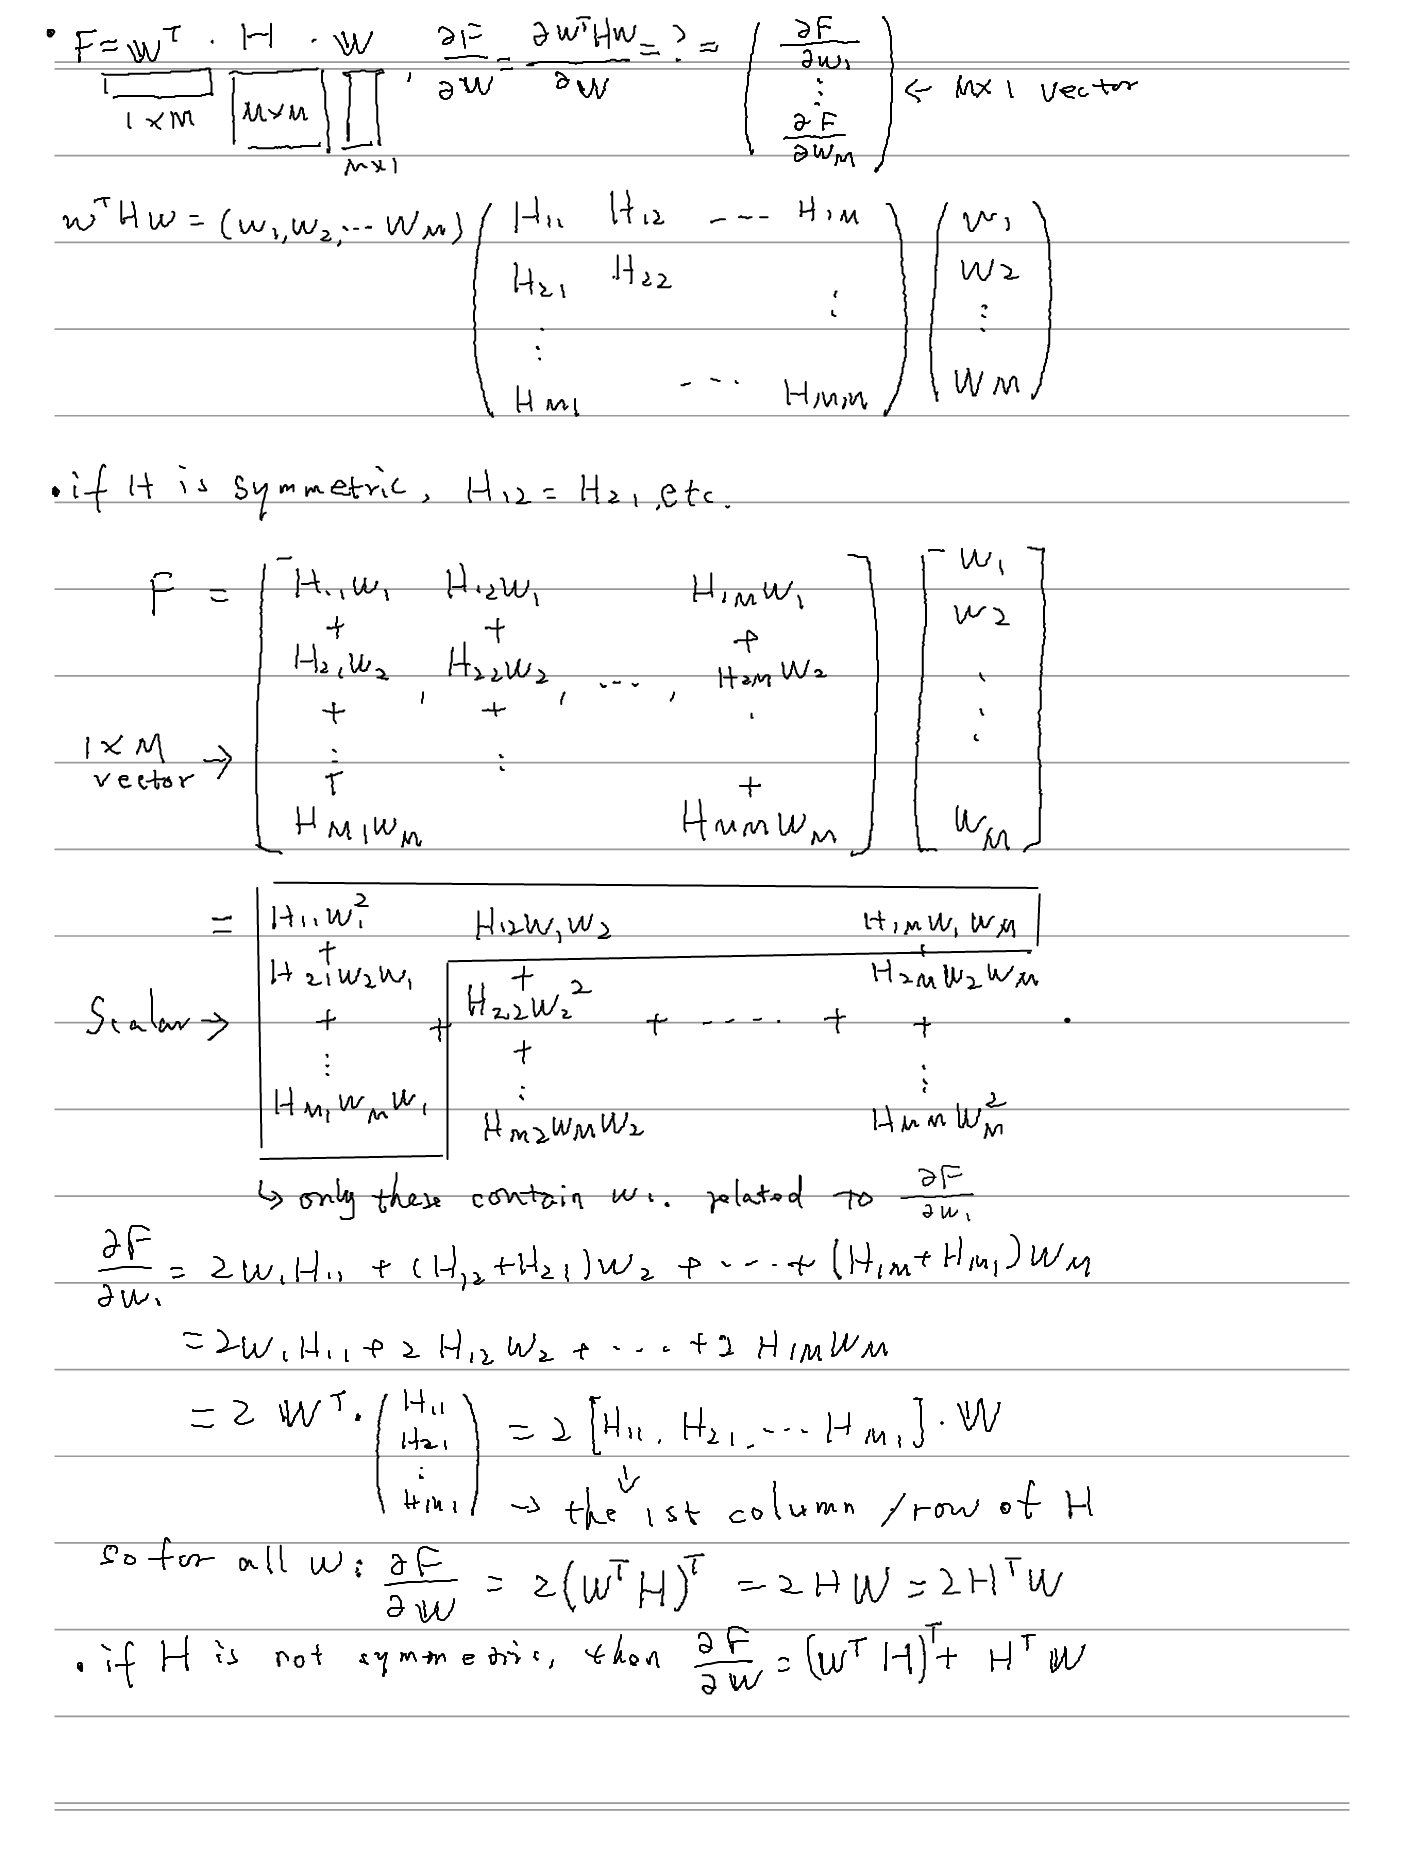 • F = W^T · H · W , ∂F/∂W = ∂W^T HW/∂W = ? = ( ∂F/∂w₁ ⋮ ∂F/∂w_M ) ← M×1 vector
1×M M×M M×1
w^T H W = (w₁, w₂, ... w_M) ( H₁₁ H₁₂ --- H₁M ) ( w₁ )
H₂₁ H₂₂ ⋮ w₂
⋮ ⋮
H_M1 --- H_MM w_M
• if H is symmetric, H₁₂ = H₂₁, etc.
F = [ H₁₁w₁ H₁₂w₁ H₁M w₁ ] [ w₁ ]
+ + +
H₂₁w₂ , H₂₂w₂ , ... , H₂M w₂ w₂
+ + ·
1×M vector → ⋮ ⋮ ⋮
+ +
H_M1 w_M H_MM w_M w_M
= H₁₁w₁² H₁₂w₁w₂ H₁M w₁ w_M
+ + +
H₂₁w₂w₁ H₂₂w₂² H₂M w₂ w_M
Scalar → + + + + ---- + + .
⋮ ⋮ ⋮
H_M1 w_M w₁ H_M2 w_M w₂ H_MM w_M²
↳ only these contain w₁. related to ∂F/∂w₁
∂F/∂w₁ = 2w₁H₁₁ + (H₁₂+H₂₁)w₂ + ---- + (H₁M + H_M1)w_M
= 2w₁H₁₁ + 2 H₁₂ w₂ + ---- + 2 H₁M w_M
= 2 W^T · ( H₁₁ H₂₁ ⋮ H_M1 ) = 2 [H₁₁, H₂₁, --- H_M1] · W
→ the 1st column / row of H
so for all w: ∂F/∂W = 2(W^T H)^T = 2HW = 2H^T W
• if H is not symmetric, then ∂F/∂W = (W^T H)^T + H^T W